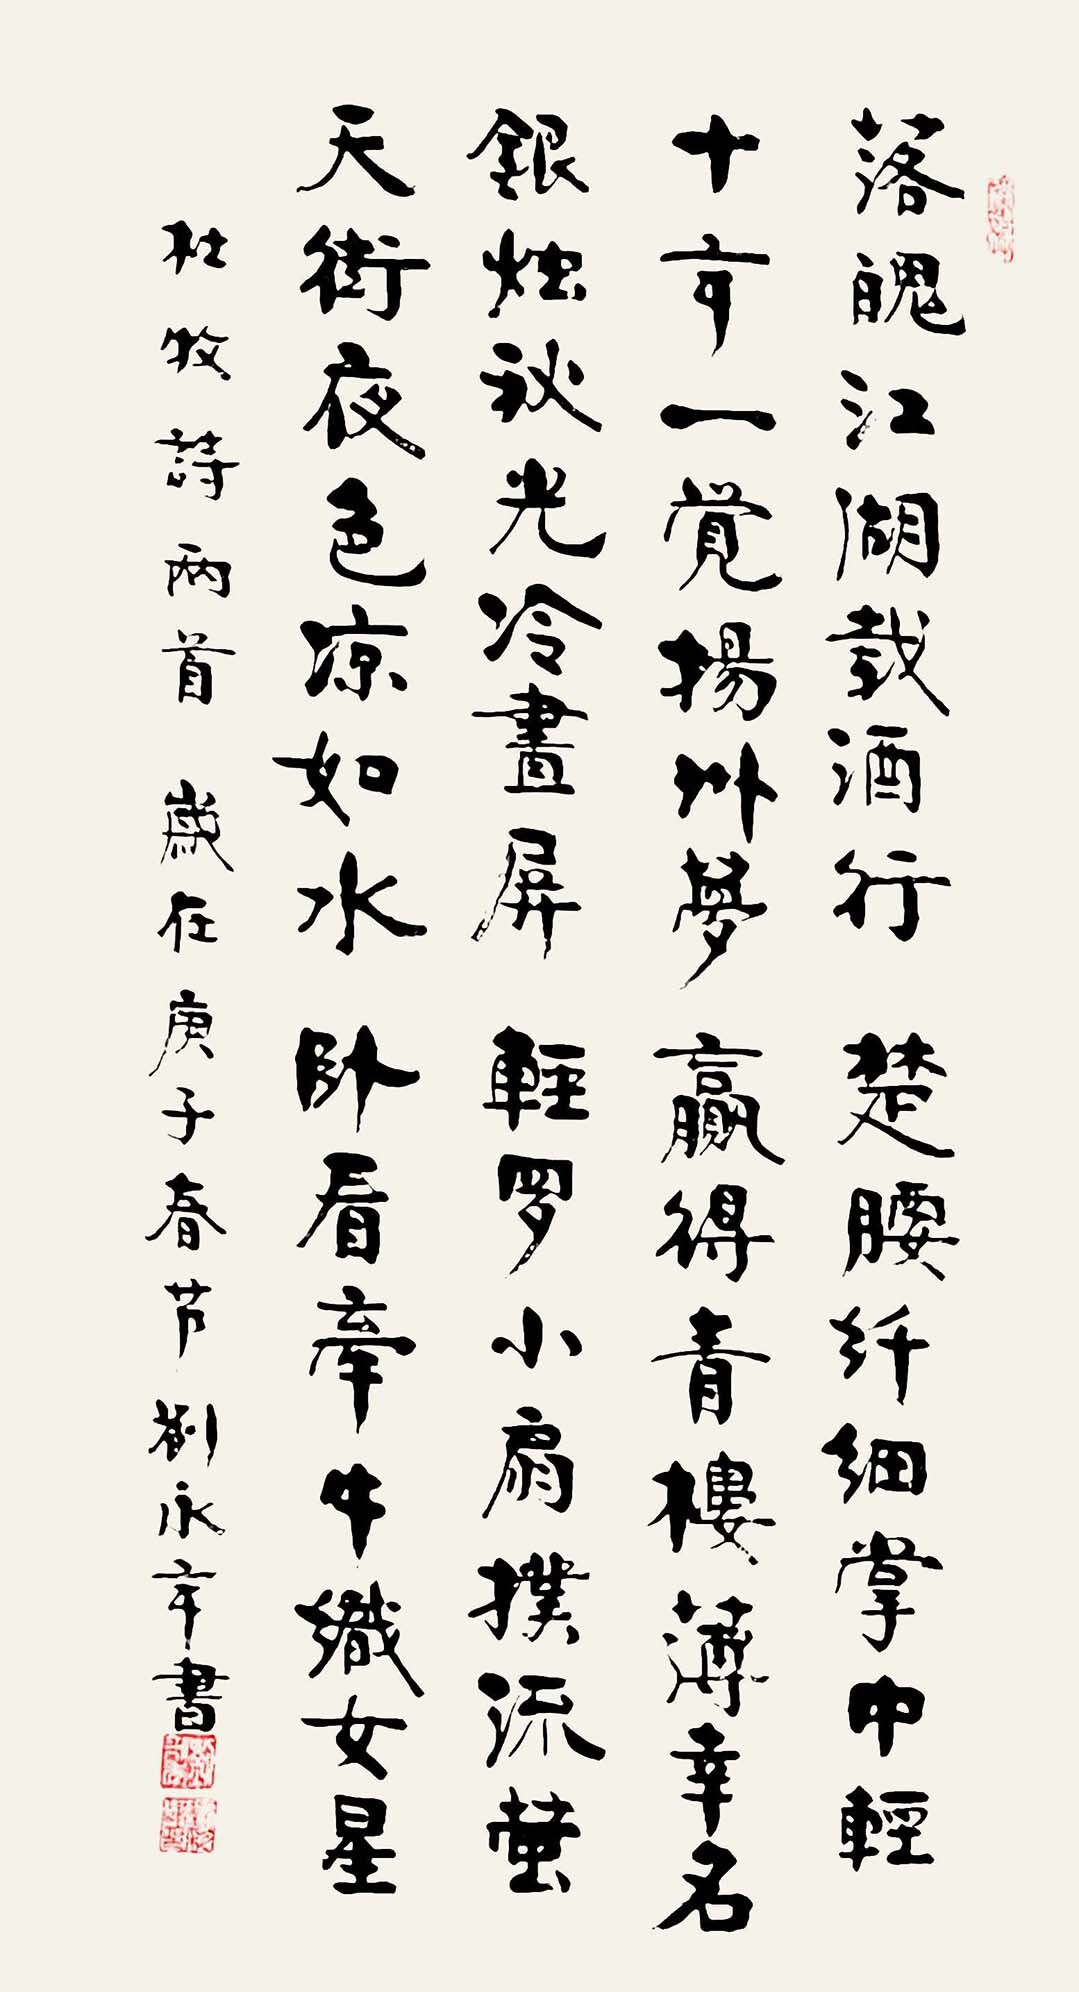 落魄江湖载酒行 楚腰纤细掌中輕
十年一覚揚州夢 赢得青樓薄幸名
銀烛秋光冷畫屏 輕罗小扇撲流萤
天街夜色凉如水 卧看牽牛織女星
杜牧詩两首 歲在庚子春节 劉永年書